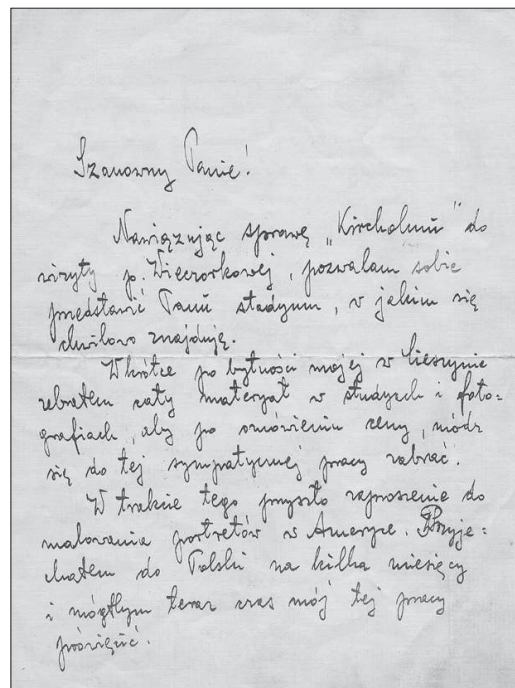 Szanowny Panie!
Nawiązując sprawę „Kircholmu" do
wizyty p. Wieczorkowej, pozwalam sobie
przedstawić Panu stadyum, w jakim się
chwilowo znajduję.
Wkrótce po bytności mojej w Cieszynie
zebrałem cały materyał w studyach i foto=
grafiach, aby po omówieniu ceny, módz
się do tej sympatycznej pracy zabrać.
W trakcie tego przyszło zaproszenie do
malowania portretów w Ameryce. Przyje=
chałem do Polski na kilka miesięcy
i mógłbym teraz czas mój tej pracy
poświęcić.